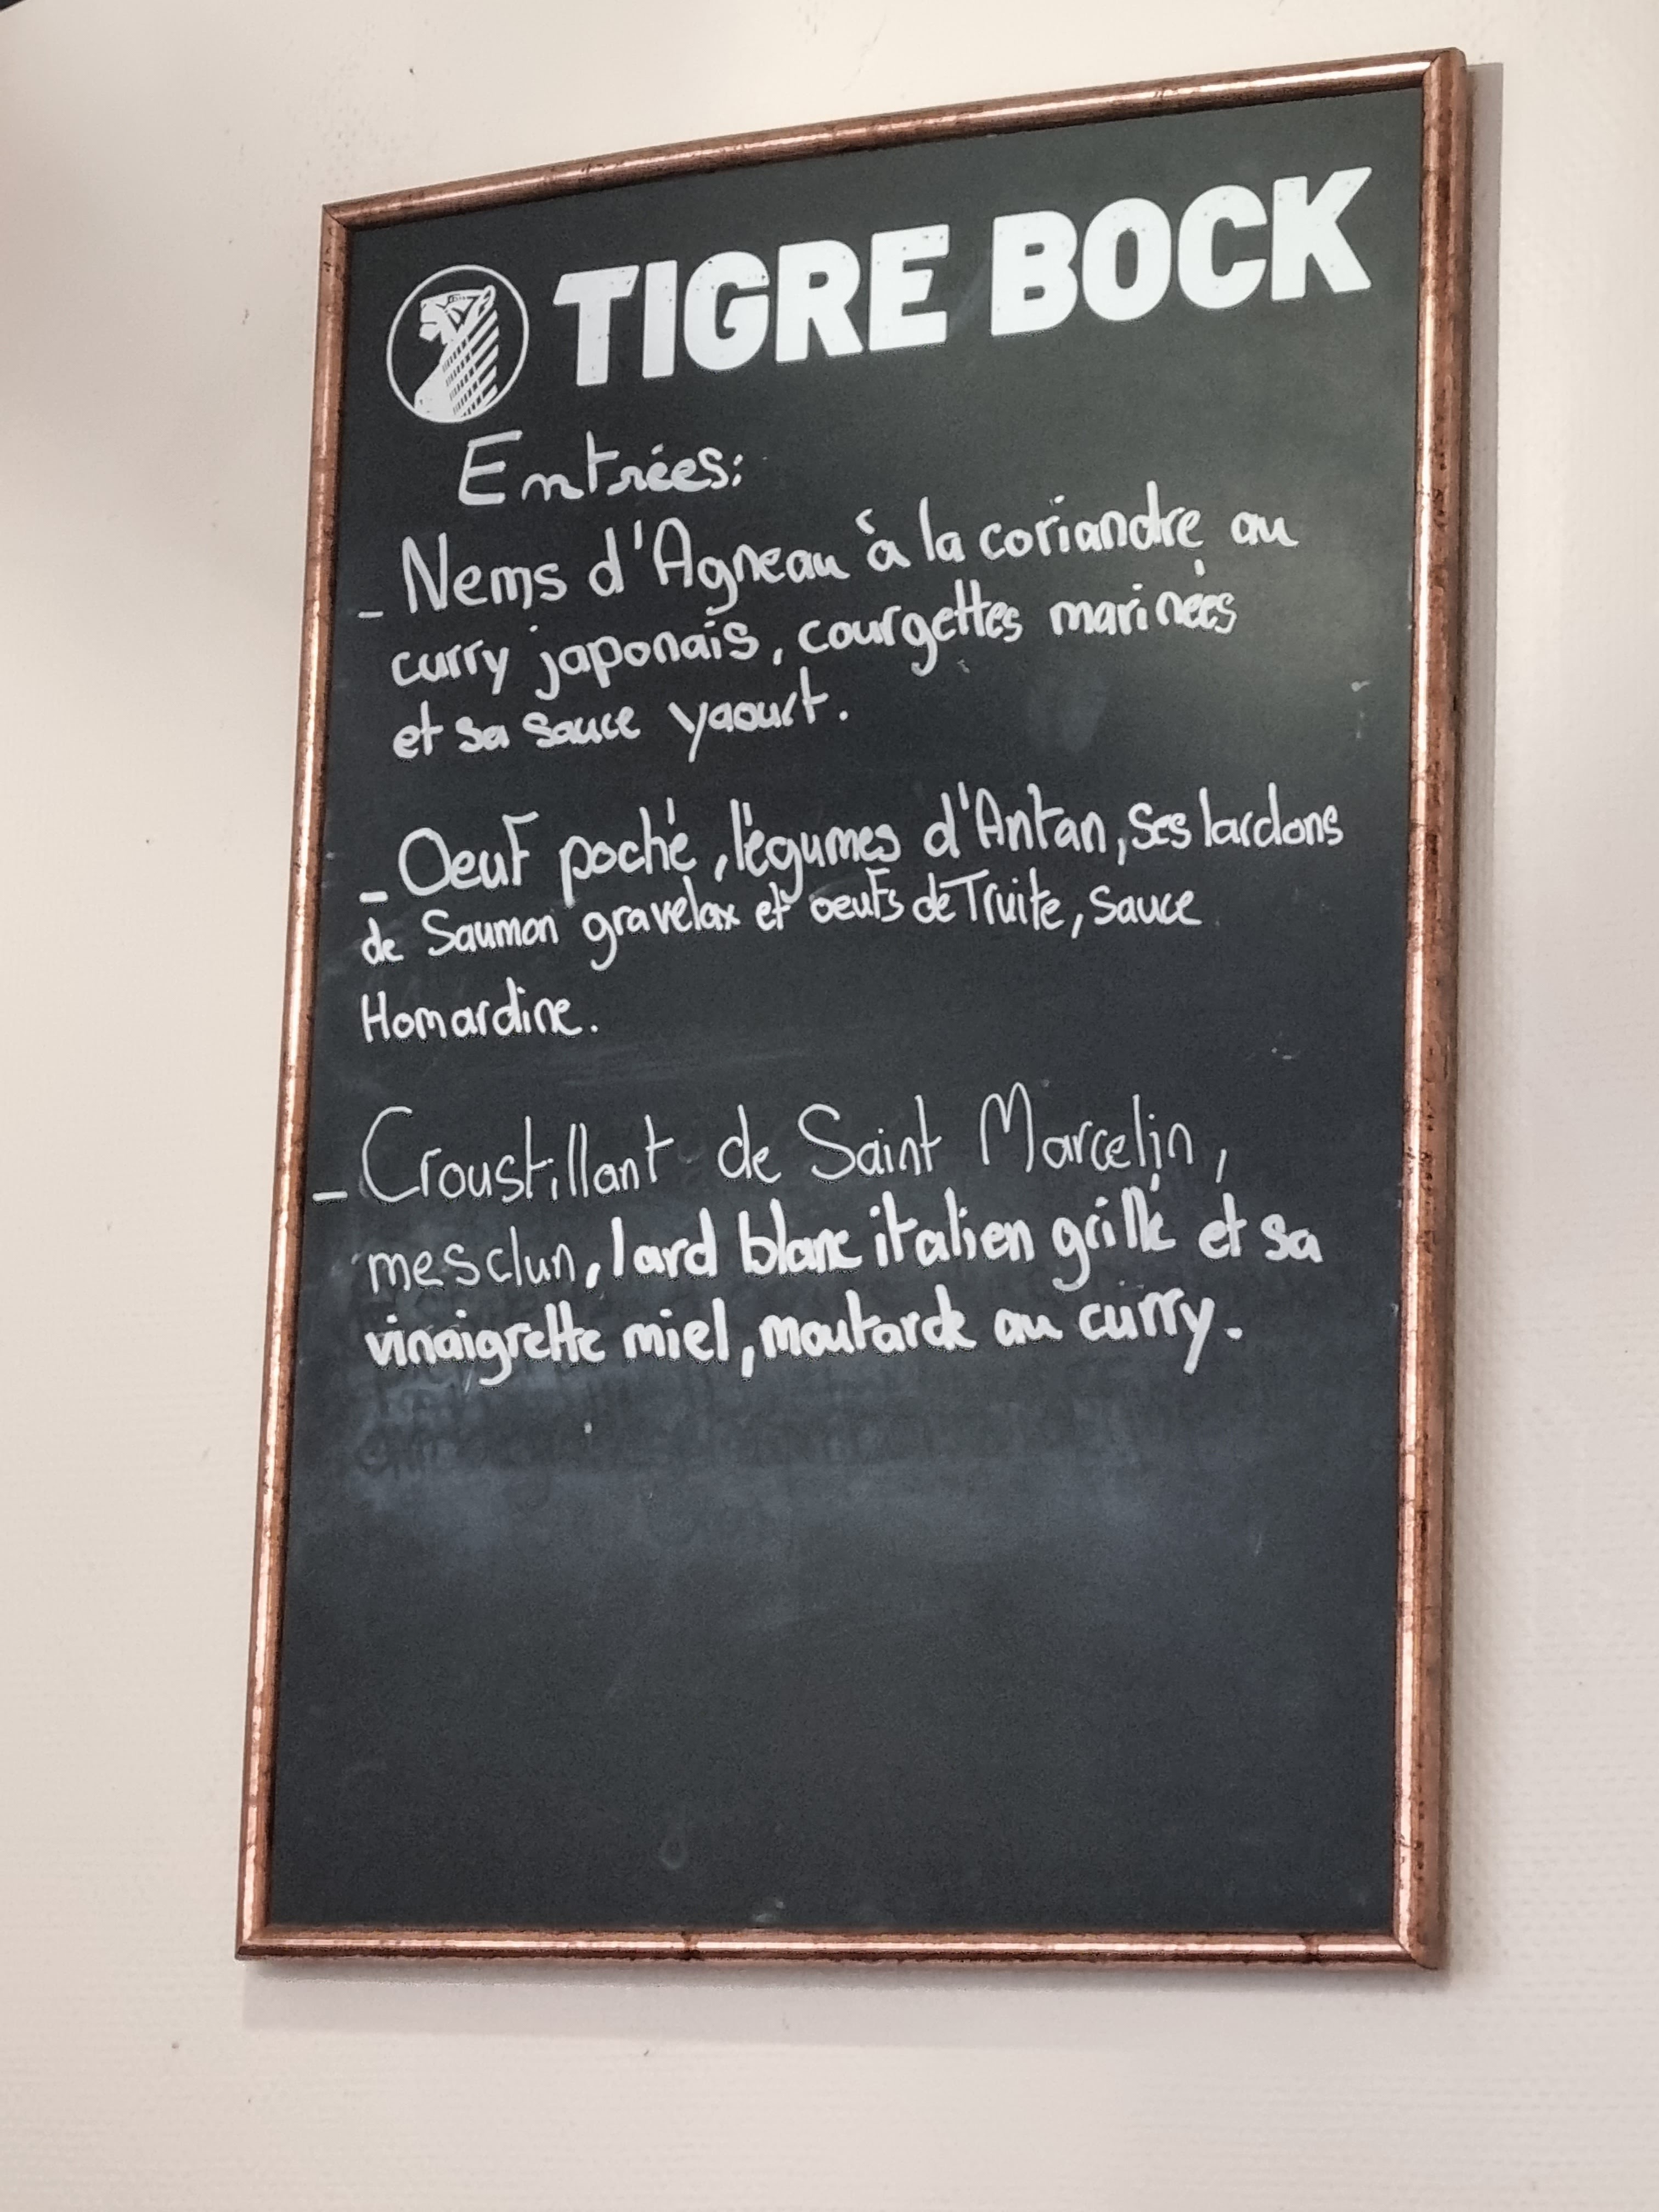 TIGRE BOCK
Entrées:
- Nems d'Agneau à la coriandre au
curry japonais, courgettes marinées
et sa sauce yaourt.
- Oeuf poché, légumes d'Antan, ses lardons
de Saumon gravelax et oeufs de Truite, sauce
Homardine.
- Croustillant de Saint Marcelin,
mesclun, lard blanc italien grillé et sa
vinaigrette miel, moutarde au curry.